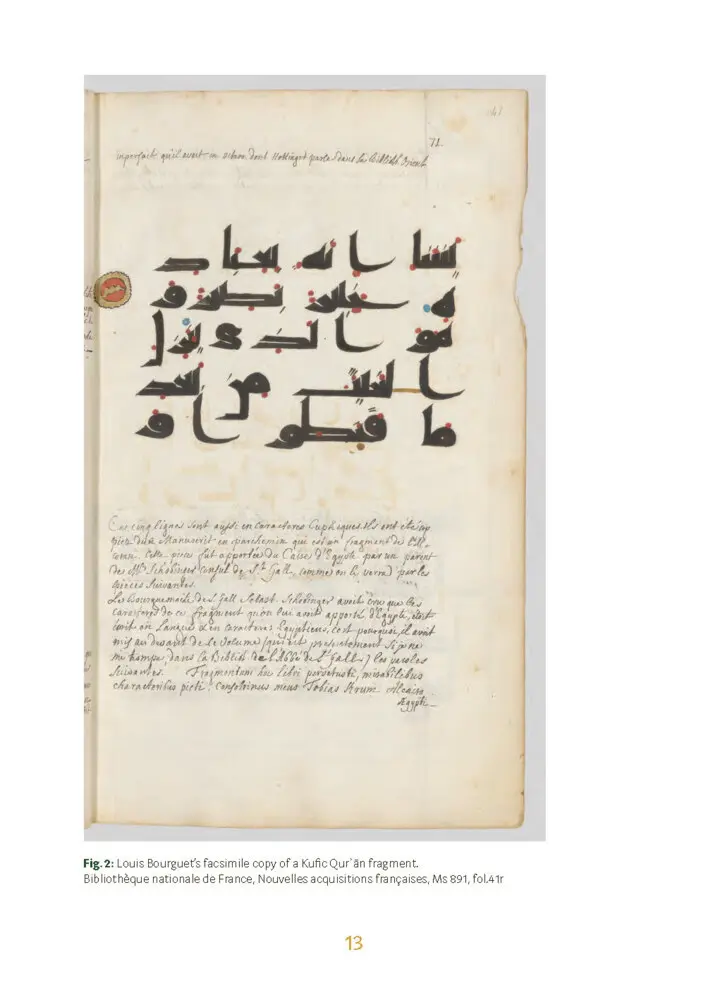 41
71.
imperfait qu'il avoit in octavo dont Hottinger parle dans sa Biblioth. Orient.
يشا انه بعباد
ه خبير بصير و
هو الذي ينزل
الغيث من بعد
ما قنطوا و
Ces cinq lignes sont aussi en caracteres Cuphiques. Ils ont été cop
piez du Manuscrit en parchemin qui est un fragment de l'Al
coran. Cette piece fut apportée du Caire d'Egypte par un parent
de Mr. Schobinger Consul de St. Gall, comme on le verra par les
pieces suivantes.
Le Bourguemaitre de St Gall Sebast Schobinger avoit cru que les
caracteres de ce fragment qu'on lui avoit apporté d'Egypte, étoit
écrit en langue & en caracteres Egyptiens, c'est pourquoi, il avoit
mis au devant de le volume (qui est presentement si je ne
me trompe, dans la Biblioth. de l'Abbé de St Gall) les paroles
suivantes. Fragmentum hu libri pervetusti, mirabilibus
characteribus picti. Consobrinus meus Tobias Krum Alcairo
Ægypti
Fig. 2: Louis Bourguet's facsimile copy of a Kufic Qurʾān fragment.
Bibliothèque nationale de France, Nouvelles acquisitions françaises, Ms 891, fol.41r
13